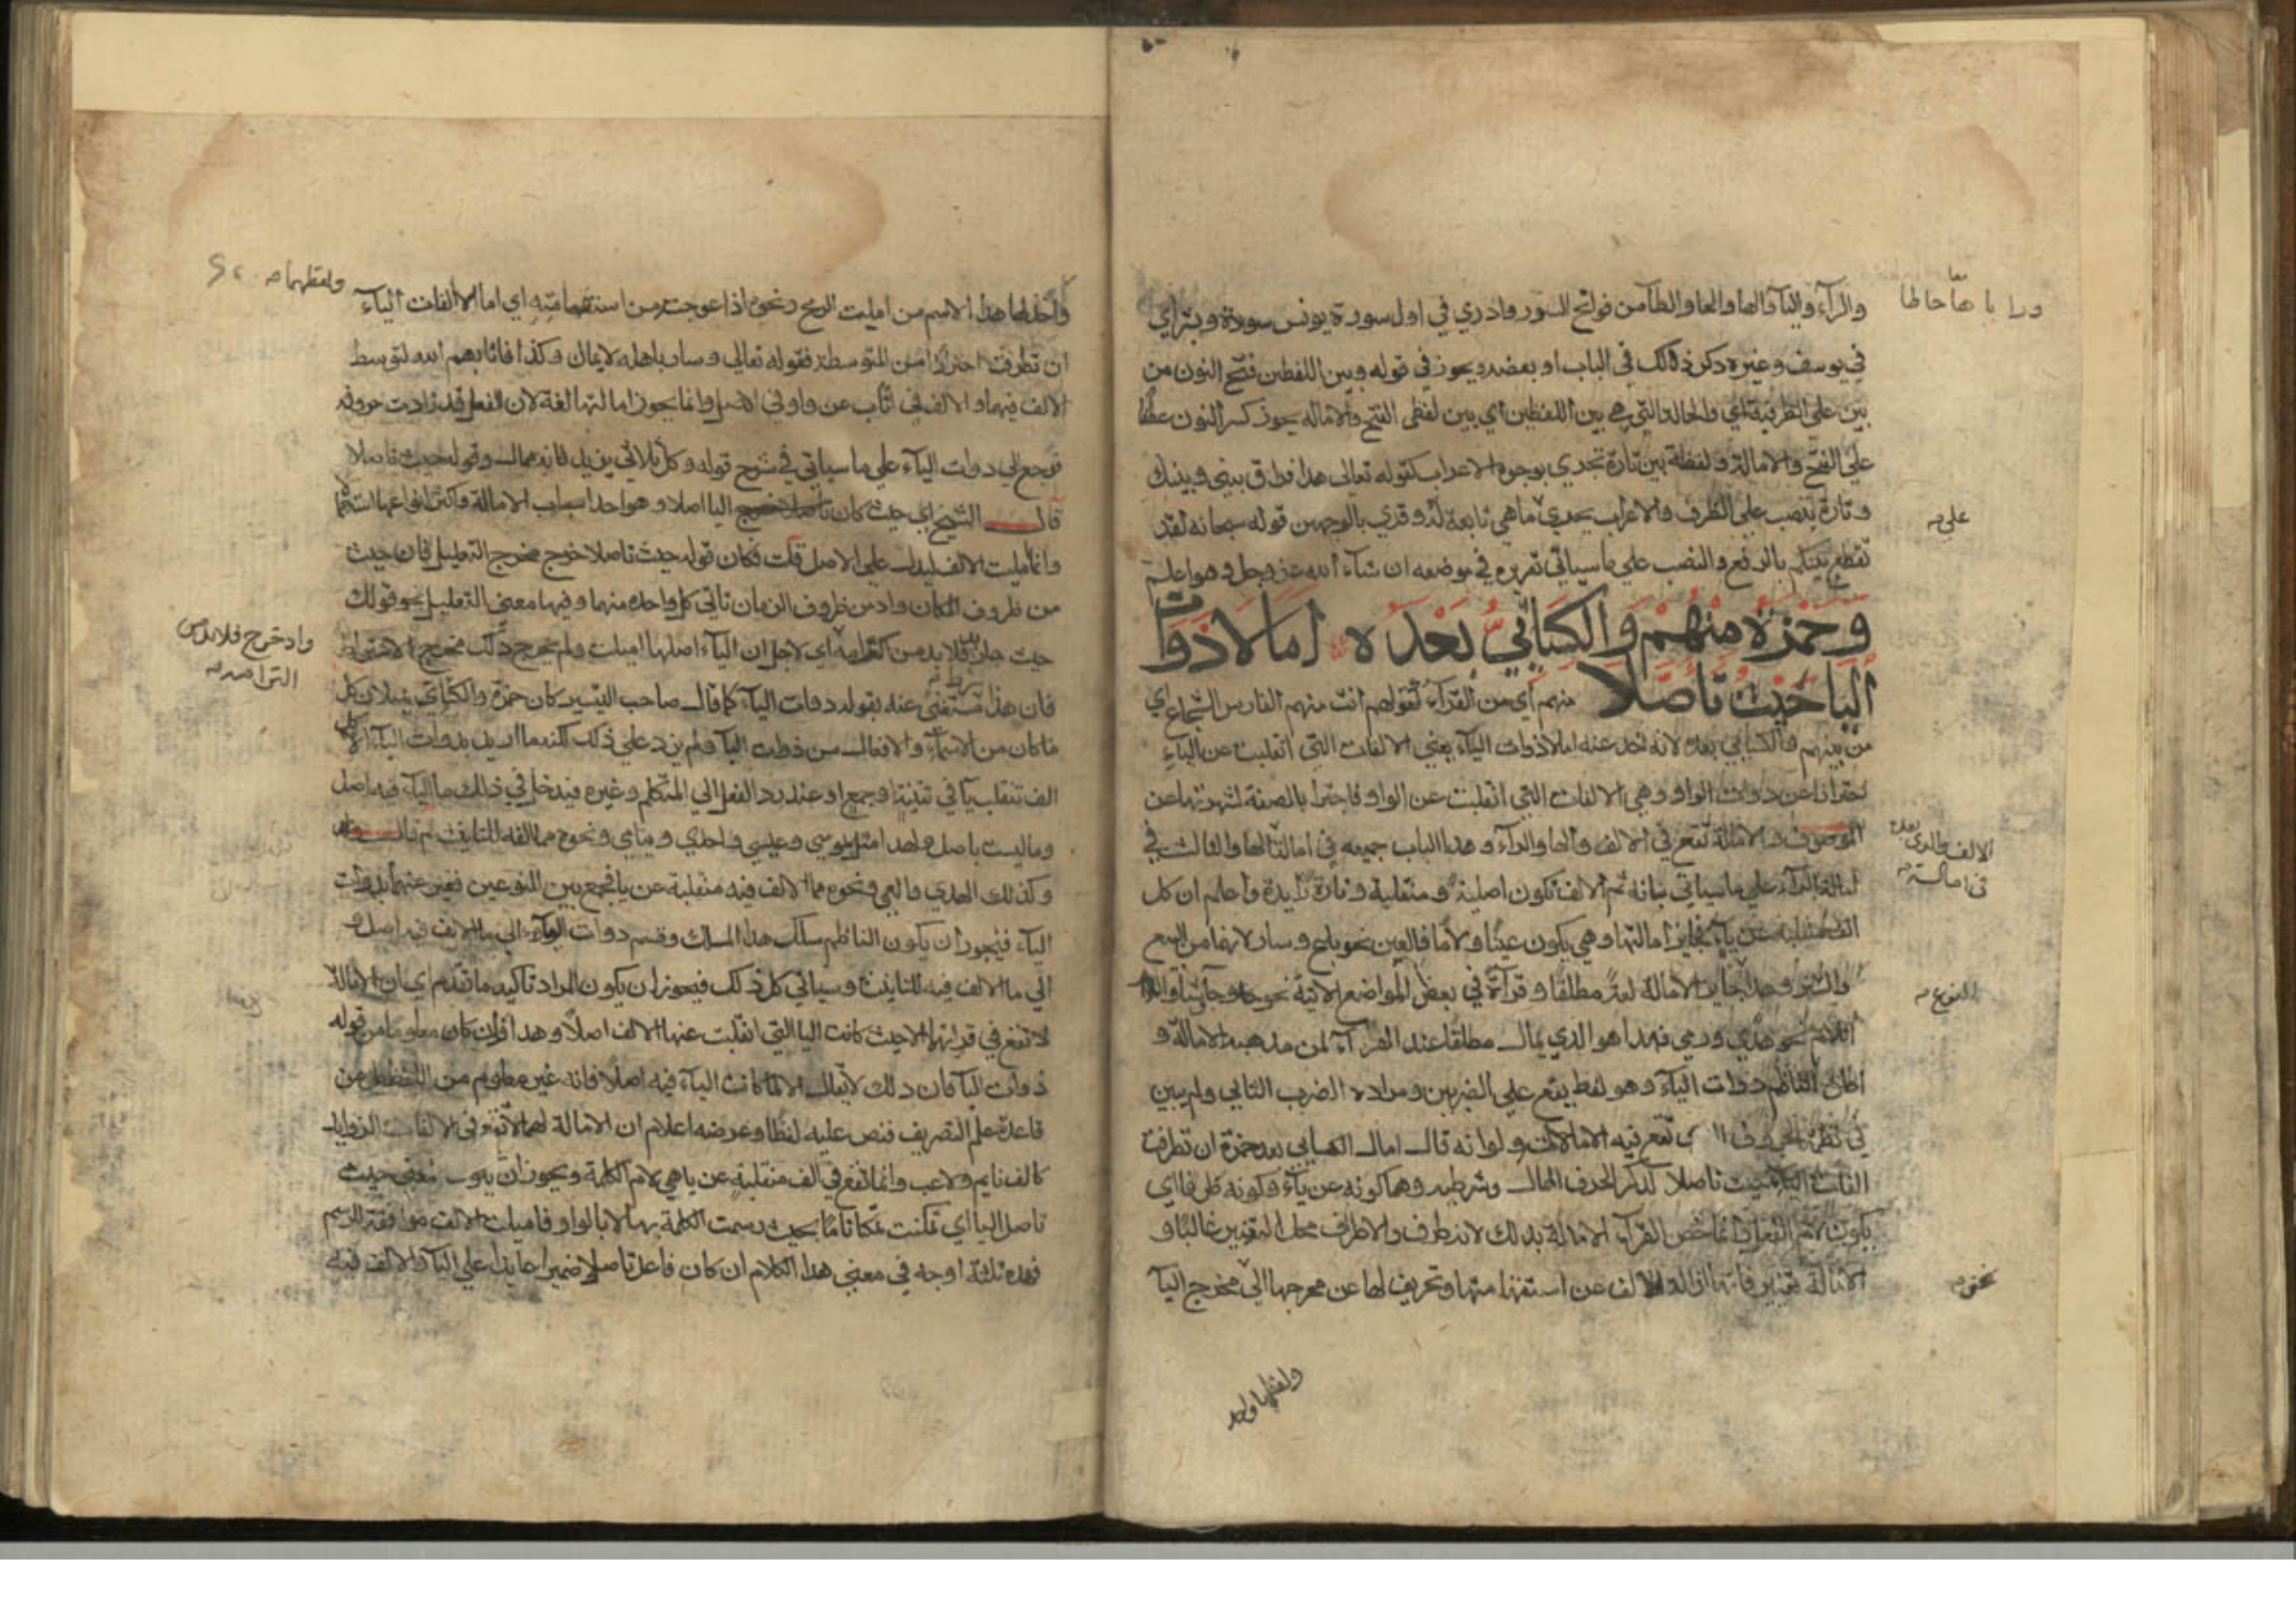 والرآء واليآ والها والحا والطآ من فواتح السور وادري في اول سورة يونس سورة وبشراي
في يوسف وغيره ذكر ذلك في الباب او بعضه ويجوز في قوله وبين اللفظين فتح النون من
بين على الظرفية اي والحالة التي هي بين اللفظين اي بين لفظي الفتح والاماله يجوز كسر النون عطفا
علي الفتح والامالة ولفظة بين تارة تجري بوجوه الاعراب كقوله تعالى هذا فراق بيني وبينك
وتارة ينصب علي الظرف والاعراب يجري ما هي تابعة له وقري بالوجهين قوله سبحانه لقد
تقطع بينكم بالرفع والنصب علي ما سياتي تقريره في موضعه ان شآء الله عز وجل وهو اعلم
وحمزة منهم والكسائي بعده امالا ذوات
اليا حيث تاصلا منهم اي من القرآء كقولهم انت منهم الفارس الشجاع اي
من بينهم والكسائي بعده لانه اخذ عنه امالا ذوات اليآء يعني الالفات التي انقلبت عن اليآء
احترازا عن ذوات الواو وهي الالفات التي انقلبت عن الواو فاجتزا بالصفة لشهرتها عن
الموصوف والامالة تقع في الالف والها والرآء وهذا الباب جميعه في امالة الها والثالث في
امالة الرآء علي ما سياتي بيانه ثم الالف تكون اصلية ومنقلبة وتارة زايدة واعلم ان كل
الف منقلبة عن يآء فجايز امالتها وهي يكون عينا ولاما فالعين نحو باع وسار لانهما من البيع
والسير وهذا جايز الامالة لغة مطلقا وقرآة في بعض المواضع الاتية نحو
اللام نحو هدي ورمي فهذا هو الذي يمال مطلقا عند القرآء لمن مذهبه الامالة و
اطلق الناظم ذوات اليآء وهو لفظ يقع علي الضربين ومراده الضرب الثاني ولم يبين
تقع فيه الامالات ولو انه قال امال الكسايي بعد حمزة ان تطرفت
الفات اليآء حيث تاصلا لذكر الحرف الممال وشرطيه وهما كونه عن يآء وكونه طرفا اي
يكون لام الفعل وانما خص القرآء الامالة بذلك لانه طرف والاطراف محل التغيير غالبا و
الامالة تغيير فانها ازالة الالف عن استقامتها وتحريف لها عن مخرجها الي مخرج اليآ
ورا يا ها حا طا
علي
الالف
في امالة
النوع
نحو
ولفظها واحد
واخذ لها هذا الاسم من امليت الرمح ونحوه اذا عوجته من استقامته اي امالا الفات اليآء
ان تطرفت احترازا من المتوسطة فقوله تعالي وسار باهله لا يمال وكذا فاثابهم الله لتوسط
الالف فيهما والالف في اثاب عن واو في الاصل وانما يجوز امالتها لغة لان الفعل قد زادت حروفه
فرجع الي ذوات اليآء علي ما سياتي في شرح قوله وكل ثلاثي يزيد فانه ممال وقوله حيث تاصلا
قال الشيخ اي حيث كان اليا اصلا وهو احد اسباب الامالة واكثر انواعها استعمالا
وانما اميلت الالف ليدل علي الاصل قلت فكان قوله حيث تاصلا خرج مخرج التعليل فان حيث
من ظروف المكان واذ من ظروف الزمان تاتي كل واحدة منهما وفيها معني التعليل نحو قولك
حيث جا زيد فلا بد من اكرامه اي لاجل ان اليآء اصلها اميلت ولم يخرج ذلك مخرج الاشتراط
فان هذا مستغني عنه بقوله ذوات اليآء كما قال صاحب التيسير كان حمزة والكسآي يميلان كل
ما كان من الاسمآء والافعال من ذوات اليآ فلم يزد علي ذلك لكنه ما اريد بذوات اليآء الا كل
الف تنقلب يآ في تثنية او جمع او عند رد الفعل الي المتكلم وغيره فيدخل في ذلك ما اليآء فيه اصل
وما ليست باصل ولهذا امثل بموسي وعيسي واحدي ويتامي ونحوه مما الفه للتانيث ثم قال
وكذلك الهدي والعمي ونحوه مما الالف فيه منقلبة عن يا فجمع بين النوعين فعبر عنهما بذوات
اليآء فيجوز ان يكون الناظم سلك هذا المسلك وقسم ذوات اليآء الي ما الالف فيه اصل و
الي ما الالف فيه للتانيث وسياتي كل ذلك فيجوز ان يكون المراد تاكيد ما تقدم اي ان الامالة
لا تقع في قراتهما الا حيث كانت اليا التي انقلبت عنها الالف اصلا وهذا وان كان معلوما من قوله
ذوات اليا فان ذلك لا يقال الا لما كانت اليآء فيه اصلا فانه غير معلوم من اللفظ بل من
قاعدة علم التصريف فنص عليه لفظا وغرضه اعلام ان الامالة لهما لا تقع في الالفات الزوايد
كالف نايم ولاعب وانما تقع في الف منقلبة عن يا هي لام الكلمة ويجوز ان يكون معني حيث
تاصل اليا اي تمكنت تمكنا تاما بحيث رسمت الكلمة بها لا بالواو فاميلت الالف موافقة للرسم
فهذه ثلثة اوجه في معني هذا الكلام ان كان فاعل تاصلا ضميرا عايدا علي اليآ والالف فيه
ولفظهما